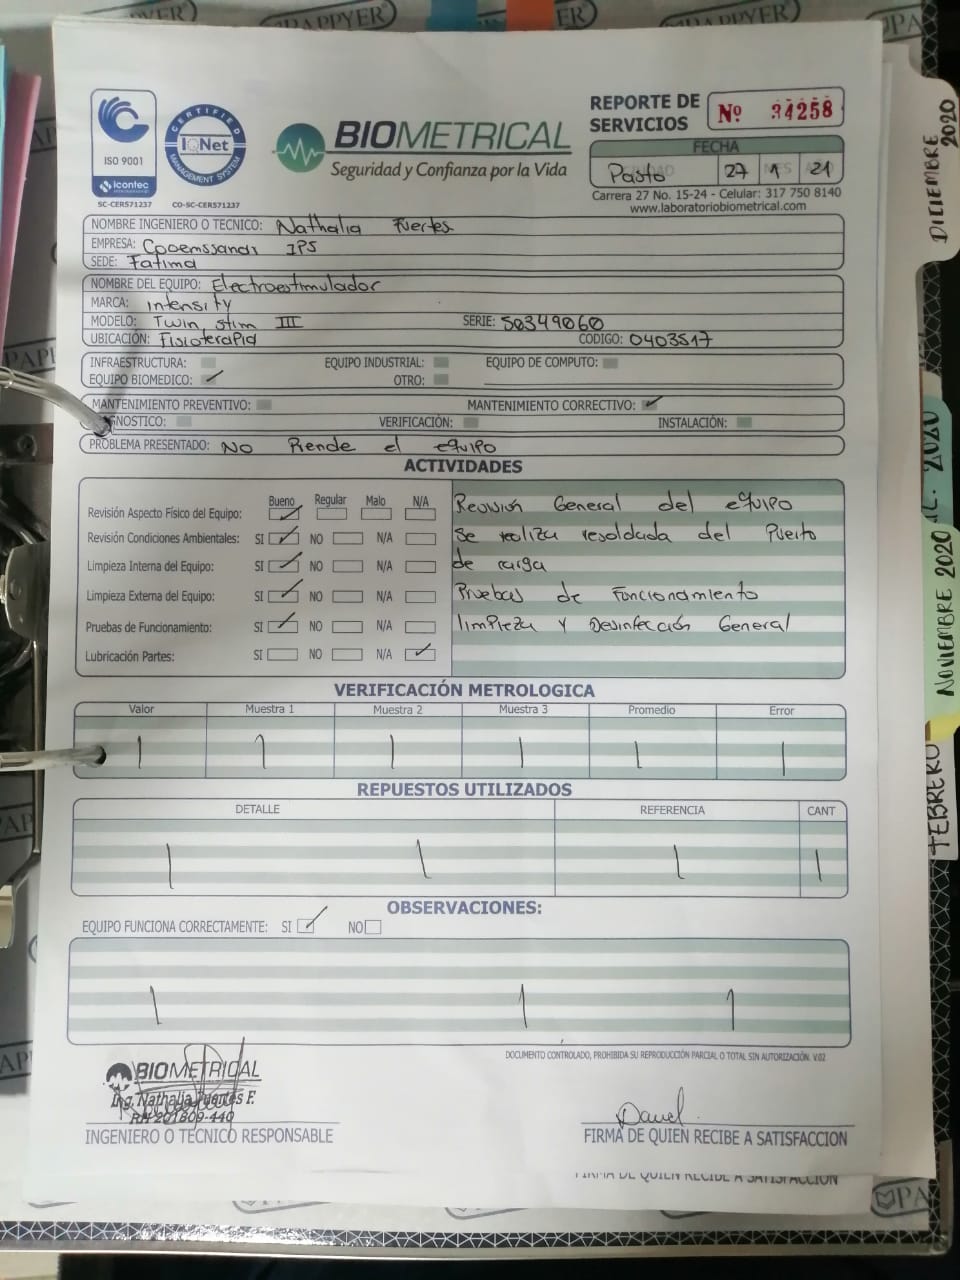 PAPPYER
REPORTE DE SERVICIOS Nº 34258
FECHA
Pasto 27 1 21
Carrera 27 No. 15-24 - Celular: 317 750 8140
www.laboratoriobiometrical.com
ISO 9001
icontec
SC-CER571237
CERTIFIED
IQNet
MANAGEMENT SYSTEM
CO-SC-CER571237
BIOMETRICAL
Seguridad y Confianza por la Vida
NOMBRE INGENIERO O TECNICO: Nathalia Fuertes
EMPRESA: Cpoemssanar IPS
SEDE: Fatima
NOMBRE DEL EQUIPO: Electroestimulador
MARCA: intensity
MODELO: Twin stim III SERIE: S0349060
UBICACIÓN: Fisioterapia CODIGO: 0403517
INFRAESTRUCTURA: EQUIPO INDUSTRIAL: EQUIPO DE COMPUTO:
EQUIPO BIOMEDICO: ✓ OTRO:
MANTENIMIENTO PREVENTIVO: MANTENIMIENTO CORRECTIVO: ✓
GNOSTICO: VERIFICACIÓN: INSTALACIÓN:
PROBLEMA PRESENTADO: No Prende el equipo
ACTIVIDADES
Bueno Regular Malo N/A
Revisión Aspecto Físico del Equipo: ✓
Revisión Condiciones Ambientales: SI ✓ NO N/A
Limpieza Interna del Equipo: SI ✓ NO N/A
Limpieza Externa del Equipo: SI ✓ NO N/A
Pruebas de Funcionamiento: SI ✓ NO N/A
Lubricación Partes: SI NO N/A ✓
Revisión General del equipo
Se realiza resoldada del Puerto
de carga
Pruebas de Funcionamiento
limpieza y Desinfección General
VERIFICACIÓN METROLOGICA
Valor Muestra 1 Muestra 2 Muestra 3 Promedio Error
REPUESTOS UTILIZADOS
DETALLE REFERENCIA CANT
OBSERVACIONES:
EQUIPO FUNCIONA CORRECTAMENTE: SI ✓ NO
DOCUMENTO CONTROLADO, PROHIBIDA SU REPRODUCCIÓN PARCIAL O TOTAL SIN AUTORIZACIÓN. V.02
BIOMETRICAL
Ing. Nathalia Fuertes F.
RH 201809-440
INGENIERO O TECNICO RESPONSABLE
FIRMA DE QUIEN RECIBE A SATISFACCION
FIRMA DE QUIEN RECIBE A SATISFACCION
DICIEMBRE 2020
NOVIEMBRE 2020
FEBRERO